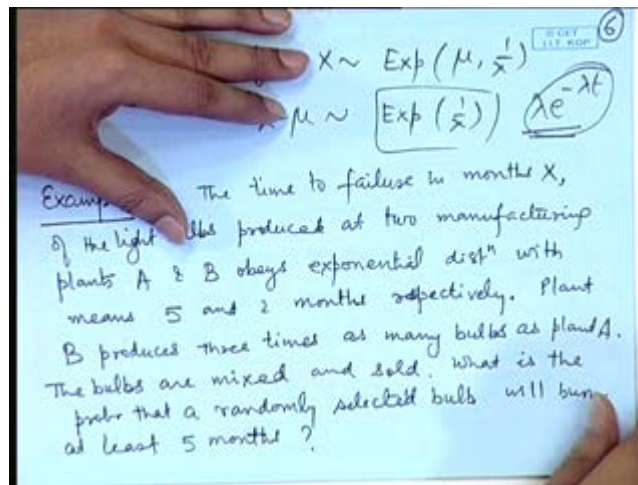 6
© CET
I.I.T. KGP
X ~ Exp (μ, 1/λ)
X-μ ~ Exp (1/λ) λe^-λt
The time to failure in months X,
of the light bulbs produced at two manufacturing
plants A & B obeys exponential distn with
means 5 and 2 months respectively. Plant
B produces three times as many bulbs as plant A.
The bulbs are mixed and sold. What is the
prob. that a randomly selected bulb will burn
at least 5 months ?